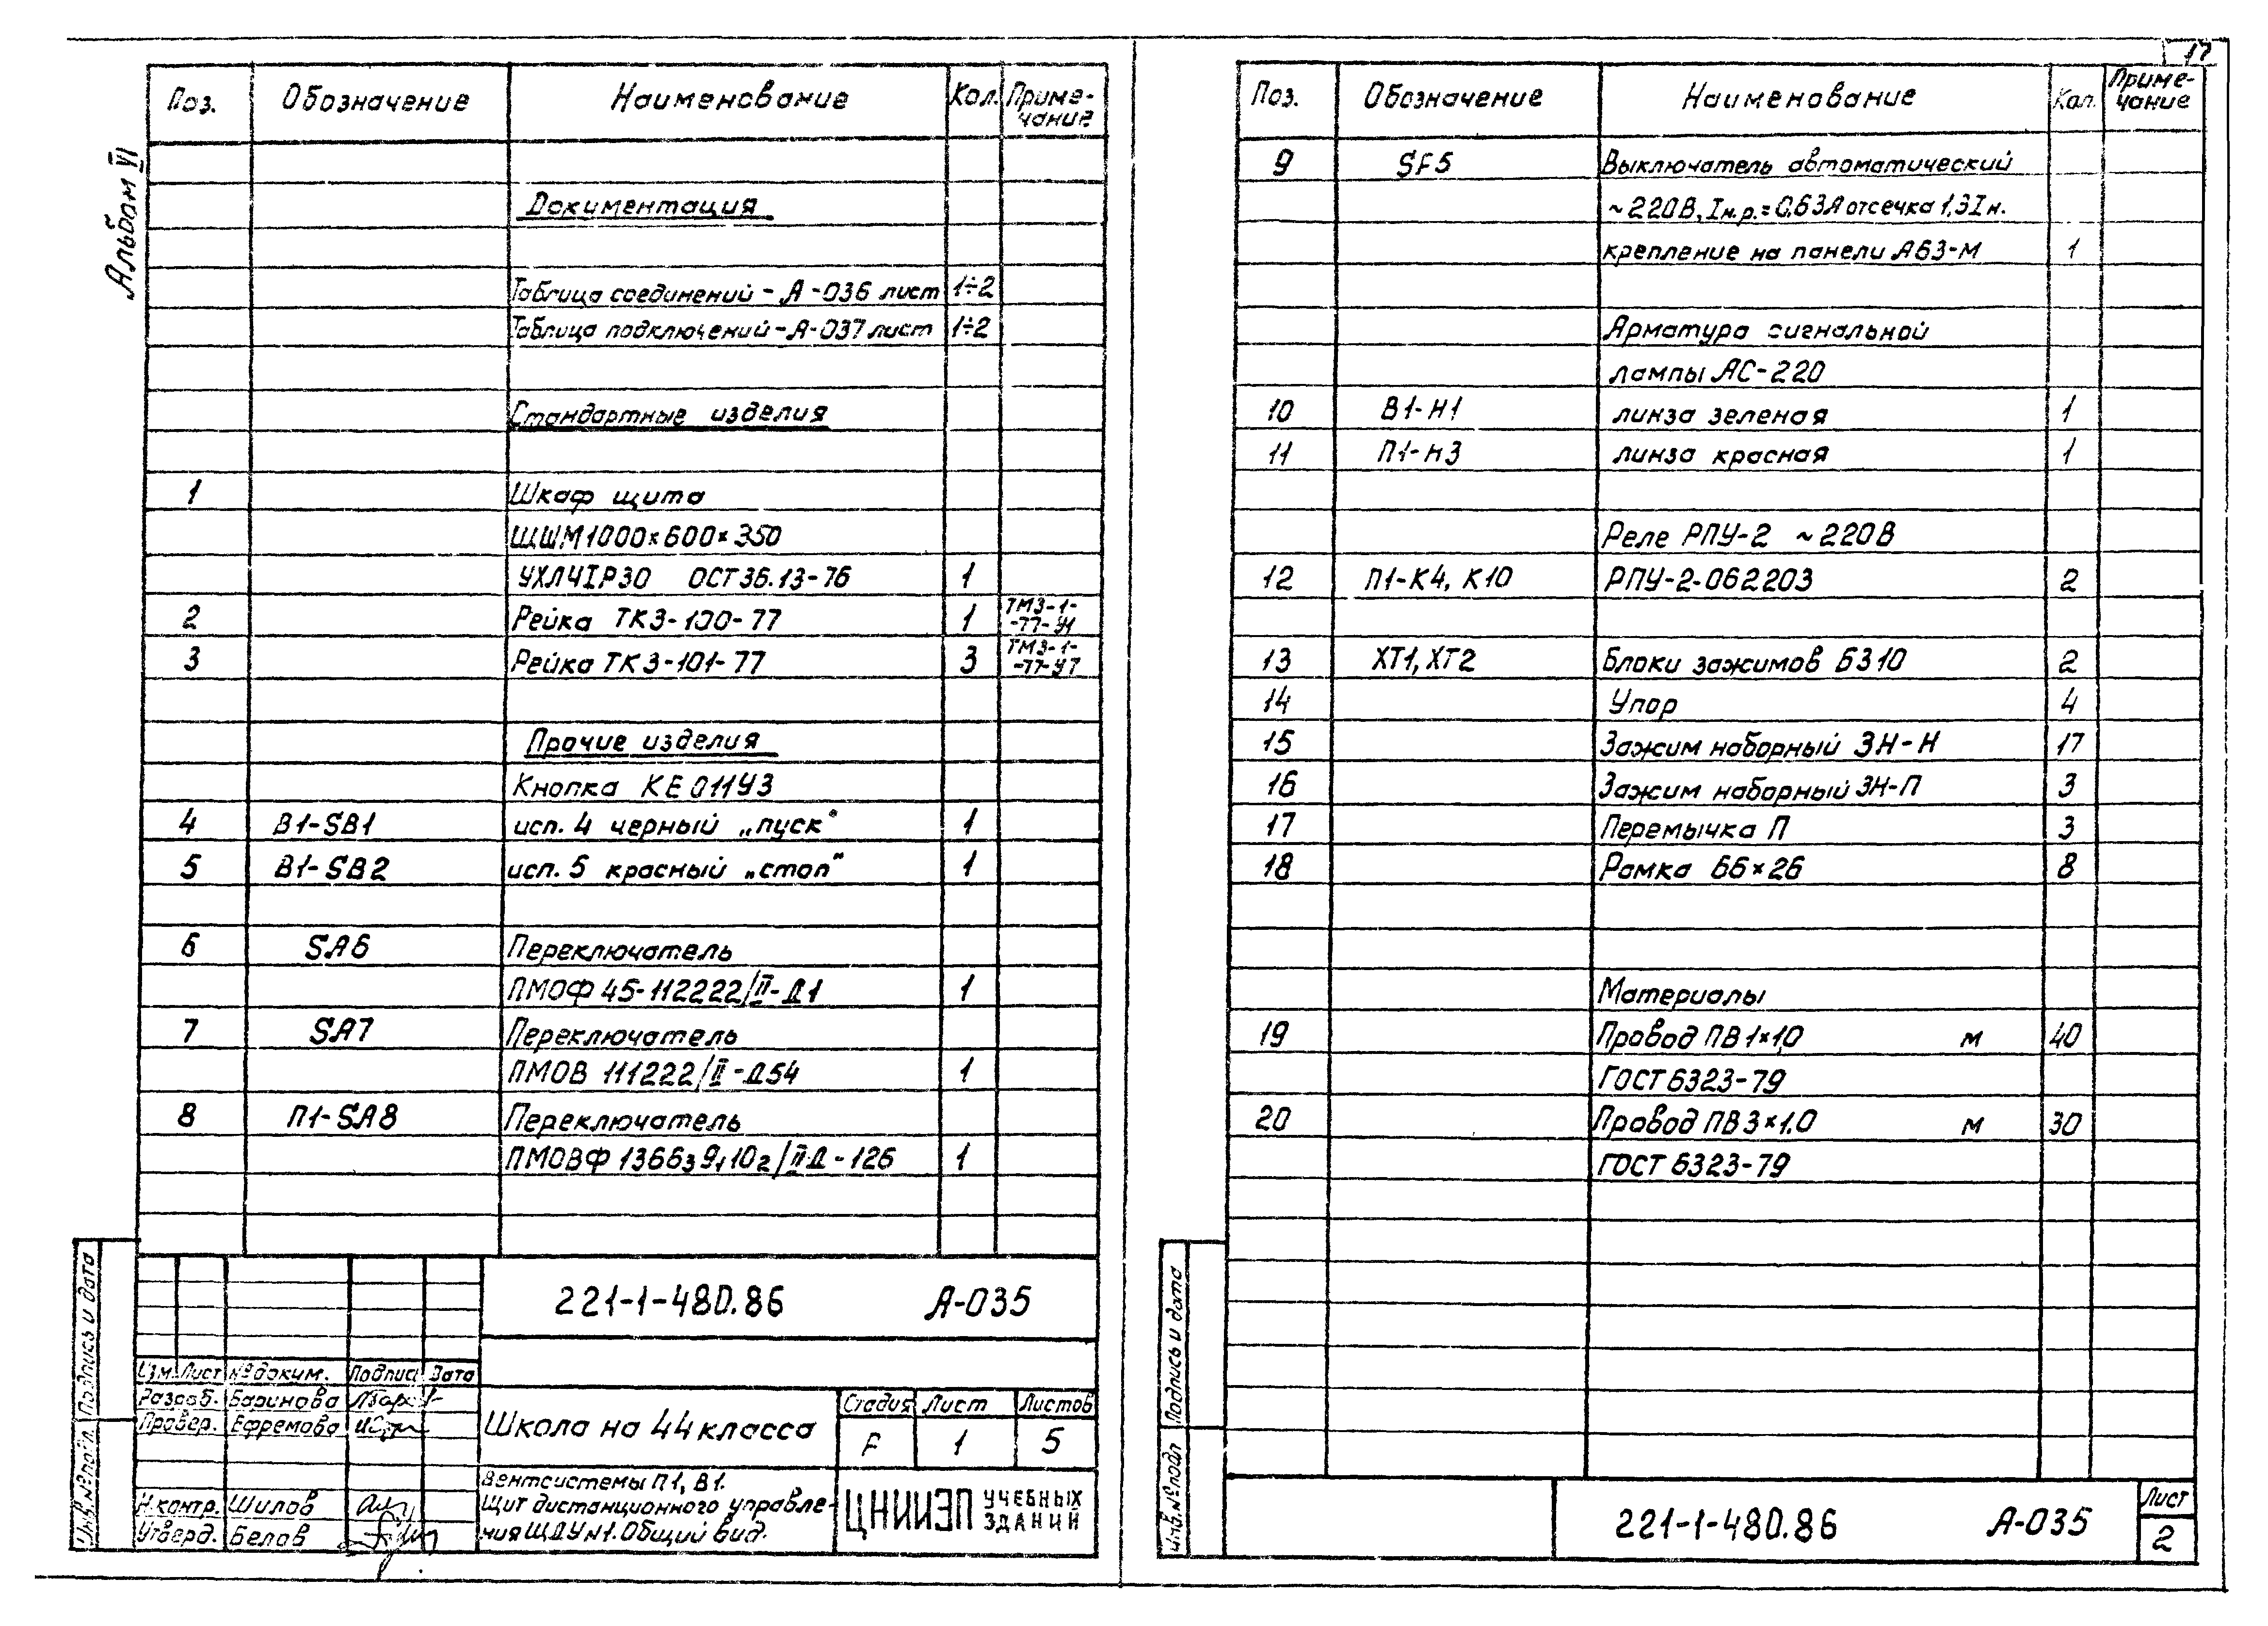 17
Альбом VI
Поз. Обозначение Наименование Кол. Приме-
чание
Документация
Таблица соединений - А-036 лист 1÷2
Таблица подключений - А-037 лист 1÷2
Стандартные изделия
1 Шкаф щита
ЩШМ 1000×600×350
УХЛ4 IP30 ОСТ 36.13-76 1
2 Рейка ТК3-100-77 1 ТМ3-1-
-77-У1
3 Рейка ТК3-101-77 3 ТМ3-1-
-77-У7
Прочие изделия
Кнопка КЕ 011У3
4 В1-SB1 исп. 4 черный „пуск" 1
5 В1-SB2 исп. 5 красный „стоп" 1
6 SA6 Переключатель
ПМОФ 45-112222/II-Д1 1
7 SA7 Переключатель
ПМОВ 111222/II-Д54 1
8 П1-SA8 Переключатель
ПМОВФ 136639,102/II Д-126 1
221-1-480.86 А-035
Изм. Лист № докум. Подпись Дата
Разраб. Баринова
Провер. Ефремова
Н.контр. Шилов
Утверд. Белов
Школа на 44 класса
Стадия Лист Листов
Р 1 5
Вентсистемы П1, В1.
Щит дистанционного управле-
ния ЩДУ №1. Общий вид.
ЦНИИЭП УЧЕБНЫХ
ЗДАНИЙ
Подпись и дата
Инв. № подл.
Поз. Обозначение Наименование Кол. Приме-
чание
9 SF5 Выключатель автоматический
~220В, Iн.р.=0,63А отсечка 1,3Iн.
крепление на панели А63-М 1
Арматура сигнальной
лампы АС-220
10 В1-Н1 линза зеленая 1
11 П1-Н3 линза красная 1
Реле РПУ-2 ~220В
12 П1-К4, К10 РПУ-2-062203 2
13 XT1, XT2 Блоки зажимов Б310 2
14 Упор 4
15 Зажим наборный ЗН-Н 17
16 Зажим наборный ЗН-П 3
17 Перемычка П 3
18 Рамка 66×26 8
Материалы
19 Провод ПВ1×1,0 м 40
ГОСТ 6323-79
20 Провод ПВ3×1.0 м 30
ГОСТ 6323-79
Подпись и дата
Инв. № подл
221-1-480.86 А-035
Лист
2